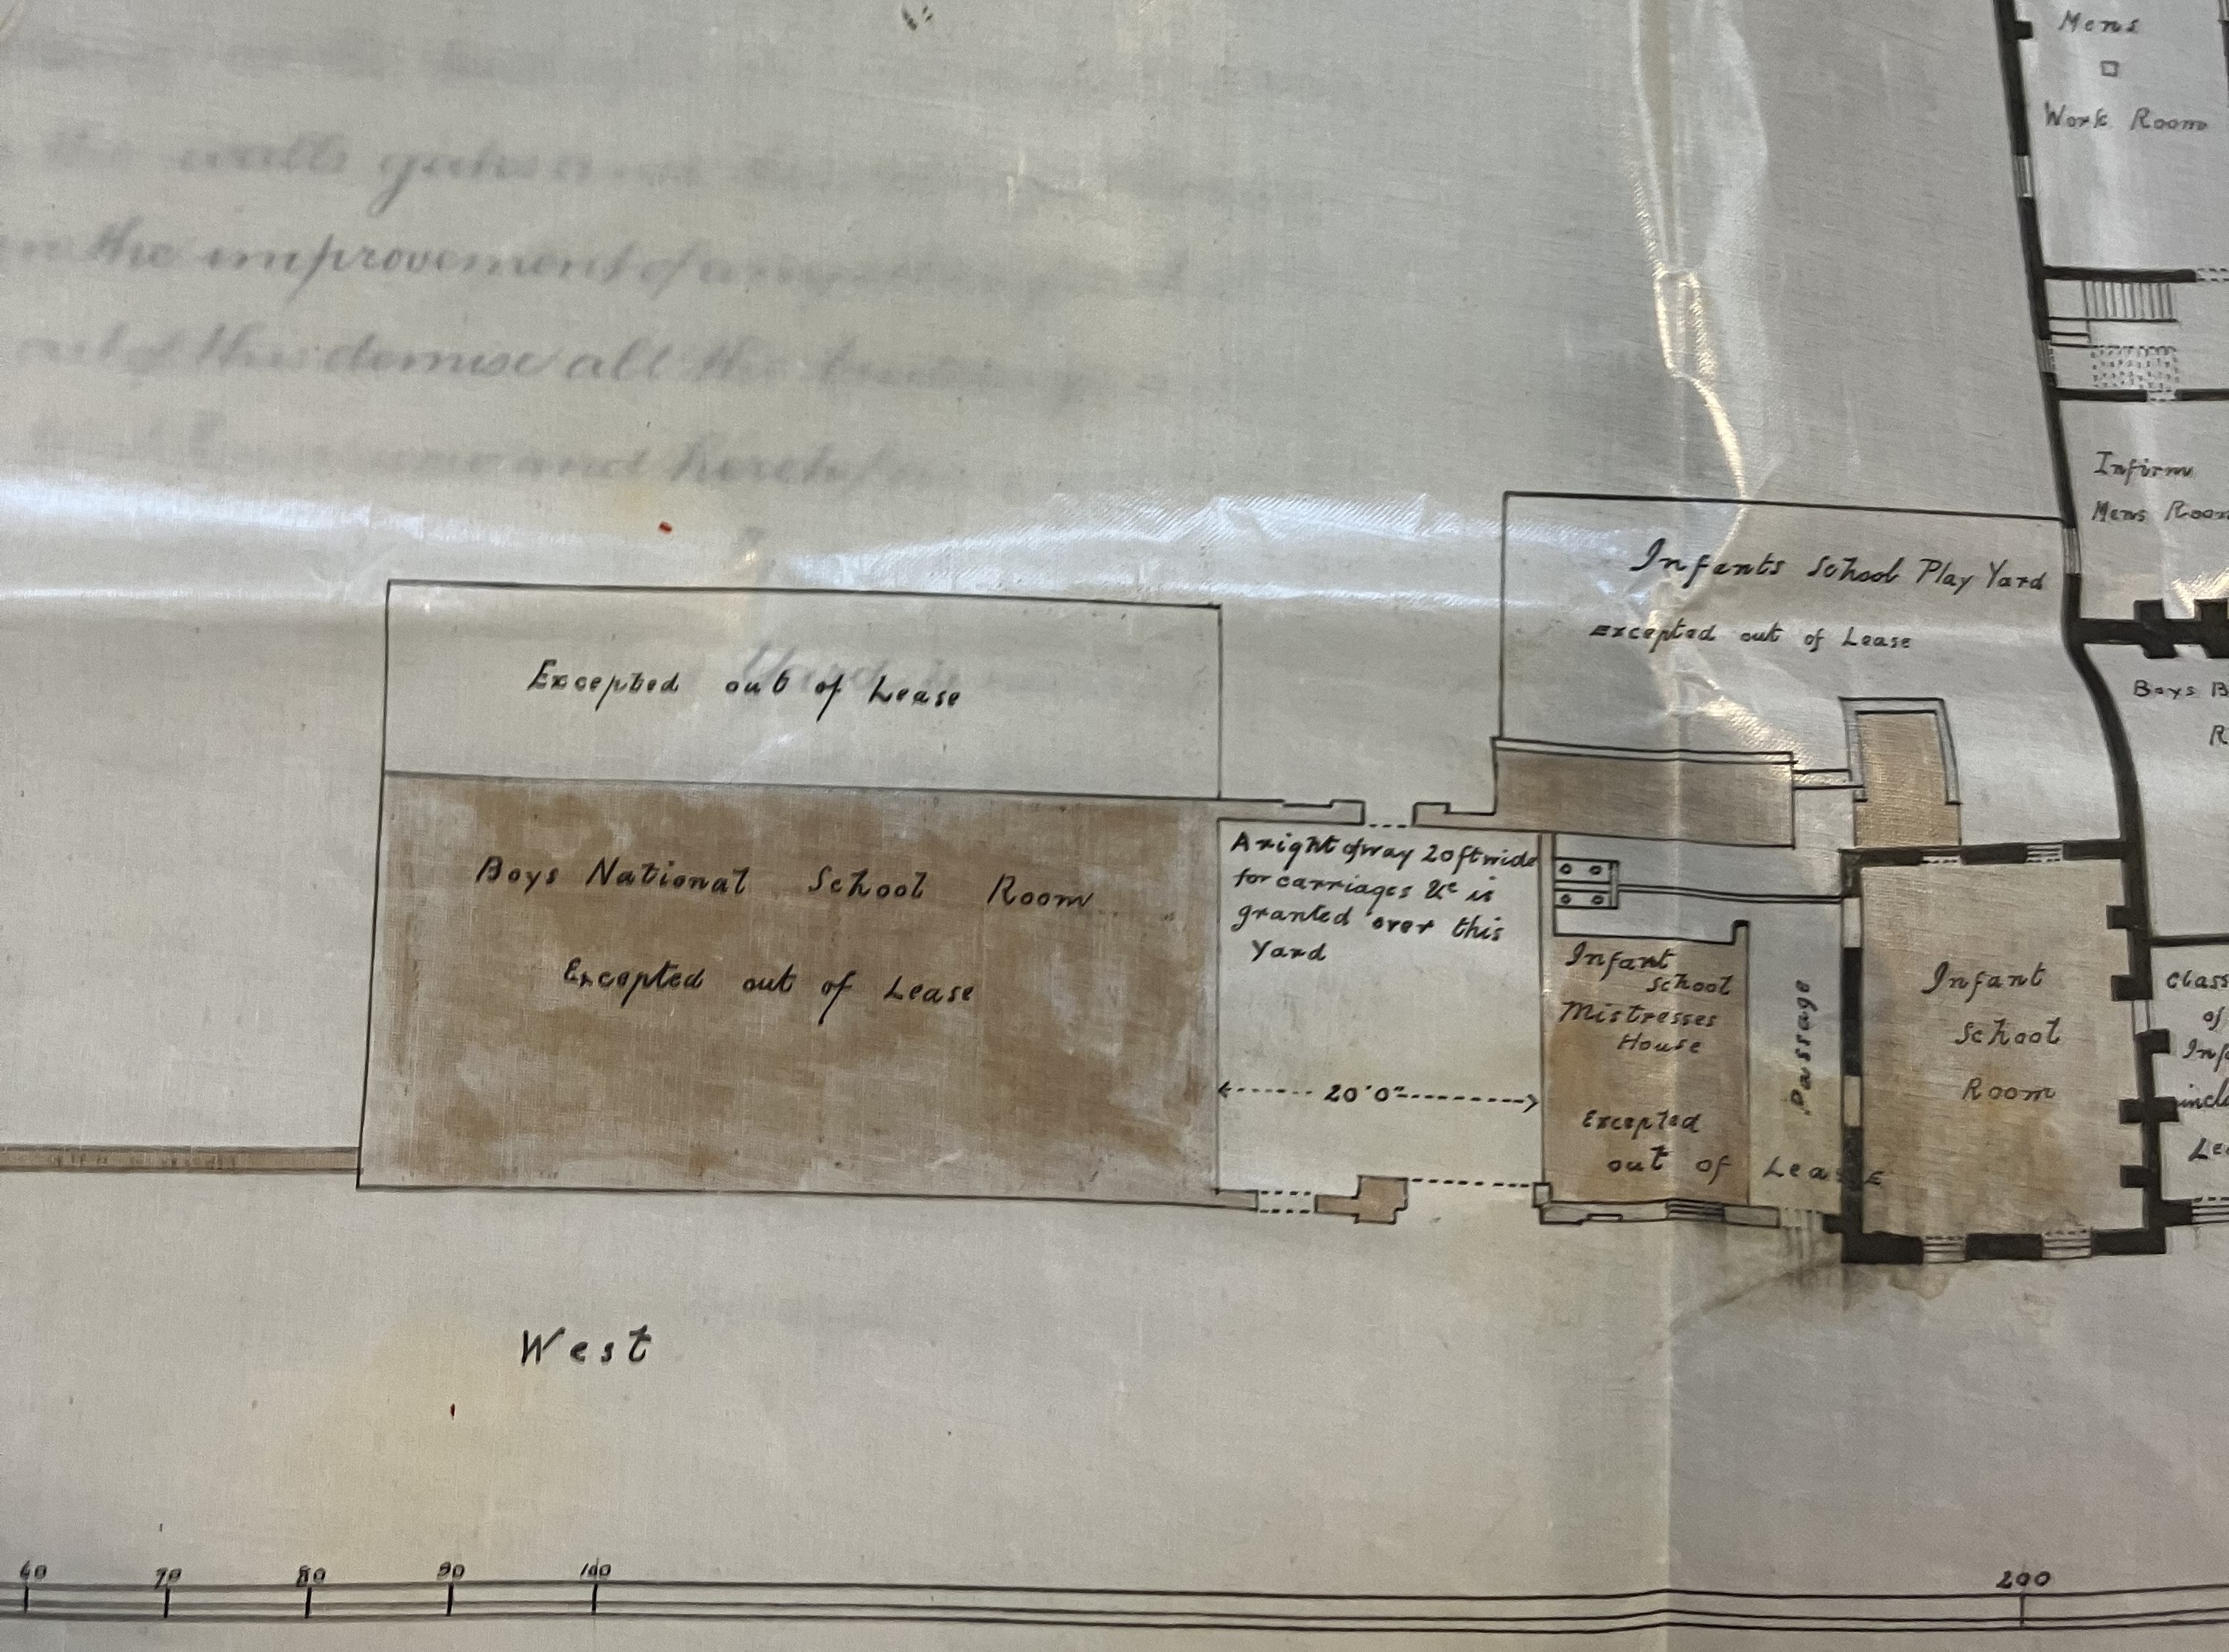 Mens
Work Room
the walls
the improvement of
out of the demise all the
and
Infirm
Mens Room
Infants School Play Yard
Excepted out of Lease
Excepted out of Lease
Boys B
R
Boys National School Room
Excepted out of Lease
A right of way 20 ft wide
for carriages &c is
granted over this
Yard
20'0"
Infant
School
Mistresses
House
Excepted
out of Lease
Passage
Infant
School
Room
Class
of
Inf
inclu
Lea
West
60 70 80 90 100 200